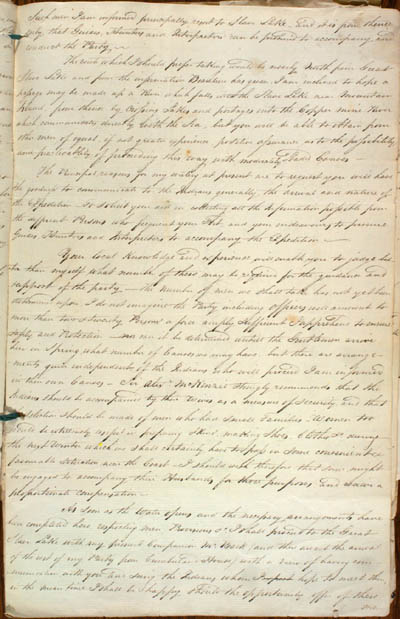 Such men I am informed principally resort to Slave Lake and it is from thence
only, that Guides, Hunters and Interpreters can be procured to accompany and
conduct the Party.
The route which I should prefer taking would be nearly North from Great
Slave Lake and from the information has given I am inclined to hope a
passage may be made up a River which falls into the Slave Lake near Mountain
Island, from thence by crossing Lakes and portages into the Copper mine River
which communicates directly with the Sea, but you will be able to obtain from
other men of equal if not greater experience positive assurance as to the possibility
and practicability of proceeding this way with moderately sized Canoes
The principal reasons for my writing at present are to request you will have
the goodness to communicate to the Indians generally the arrival and nature of
the Expedition to solicit your aid in collecting all the information possible from
the different Persons who frequent your Fort and your endeavours to procure
Guides, Hunters and Interpreters to accompany the Expedition
Your local knowledge and experience will enable you to judge bet-
ter than myself what number of these may be requisite for the guidance and
support of the party, the number of men we shall take has not yet been
determined upon I do not imagine the Party including officers will amount to
more than two & twenty Persons a force amply sufficient I apprehend to ensure
safety and Protection nor can it be determined untill the Gentlemen arrive
here in Spring what number of Canoes we may have but these are arrange-
ments quite independent of the Indians who will proceed I am informed
in their own Canoes Sir Alexr McKenzie strongly recommends that the
Indians should be accompanied by their Wives as a measure of security and that
selection should be made of men who have small Families Women too
will be extremely useful in preparing Skins, making Shoes &c during
the next Winter which we shall certainly have to pass in some convenient &
favourable situation near the Coast I should wish therefore that some might
be engaged to accompany their Husbands for those purposes and have a
proportionate compensation
As soon as the Water opens and the necessary arrangements have
been completed here respecting men Provisions &c I shall proceed to the Great
Slave Lake with my present Companion Mr Back, and there await the arrival
of the rest of my Party from Cumberland House, with a view of having com-
munication with you and seeing the Indians whom I hope to meet there,
in the mean time I shall be happy should the opportunity offer of there